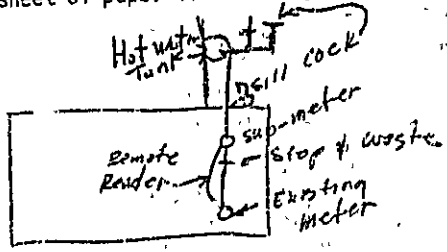 sheet of paper
Hot water
Tank
sill cock
sub-meter
Stop & waste
Remote
Reader
Existing
meter